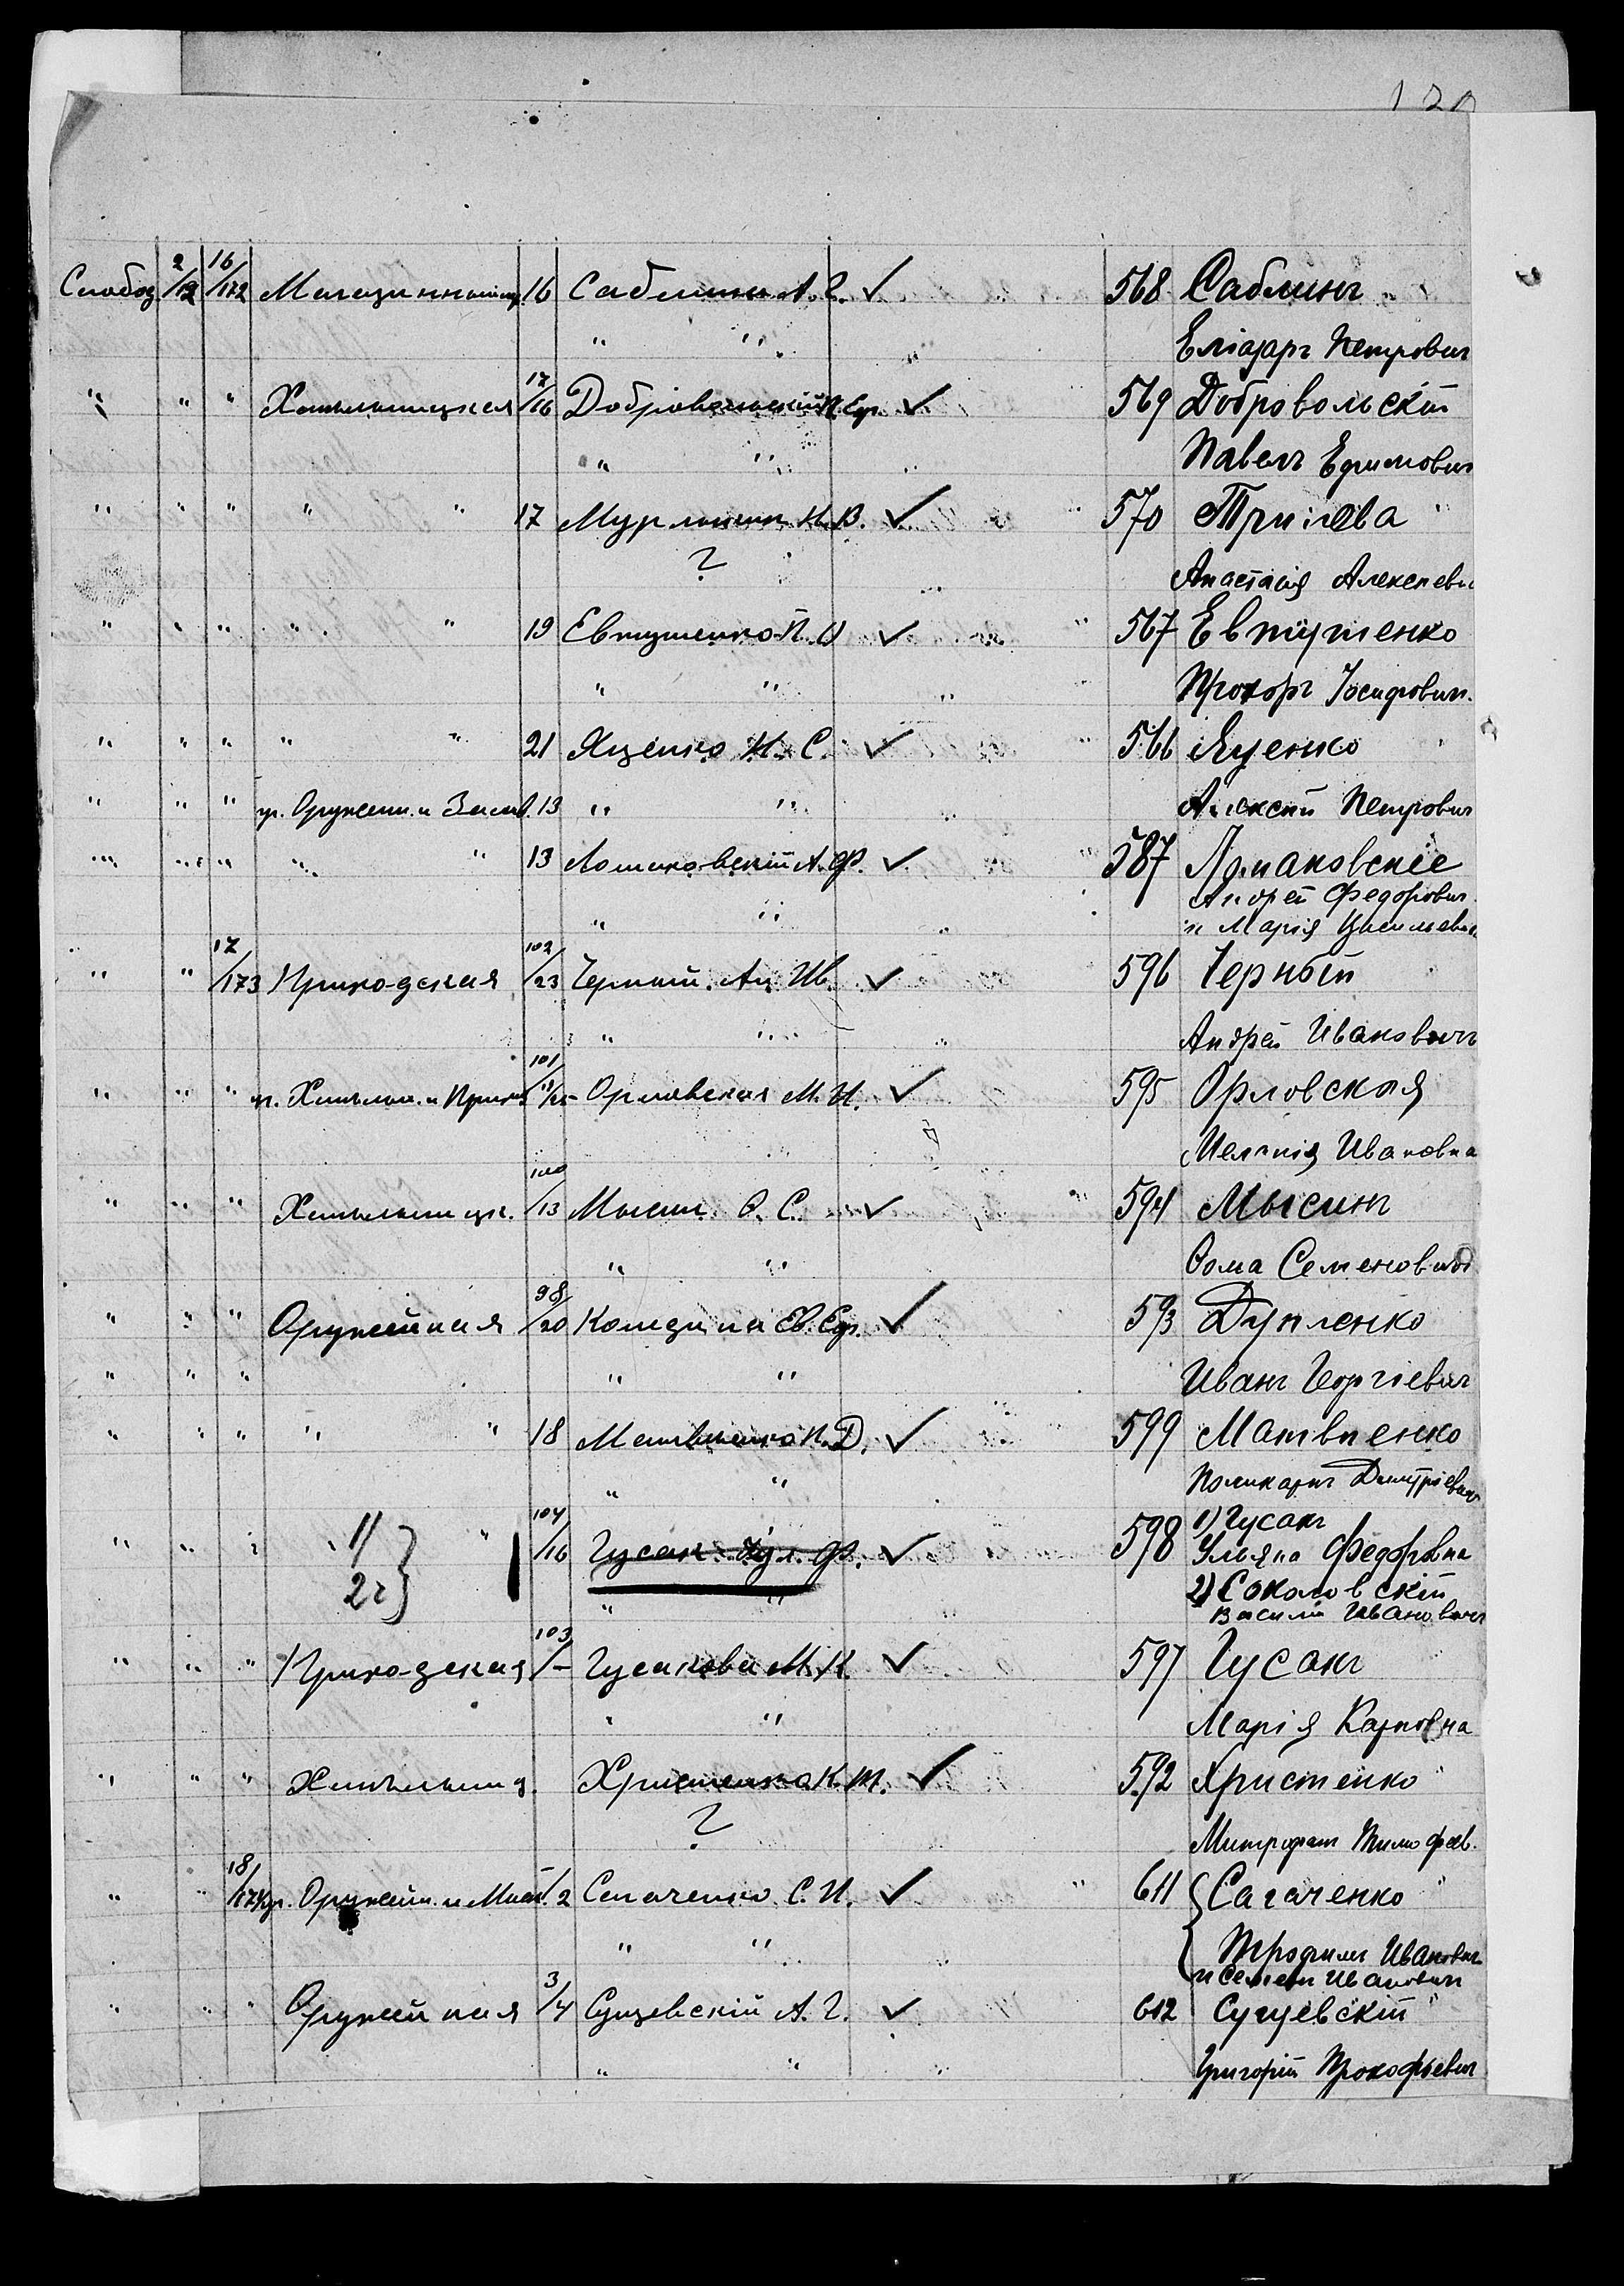 120
Слобод 2/12 16/172 Магазинная 16 Саблинъ А. Е. ✓ 568 Саблинъ
" " Еліазаръ Петровичъ
" " " Хмѣльницкая 17/16 Добровольскій П. Еф. ✓ 569 Добровольскій
" " Павелъ Ефимович
" " " " " 17 Мурлыкин Н. В. ✓ 570
? Анастасія Алексѣевн
" " " " " 19 Евтушенко П. О ✓ 567 Евтушенко
" " Прохоръ Іосифович.
" " " " " 21 Яценко И. С. ✓ 566 Яценко
" " " уг. Оружейн. и 13 " " Алексѣй Петрович
" " " " " 13 Ломаковскій А. Ф. ✓ 587 Ломаковскіе
" " Андрей Федорович
и Марія
" " 17/173 Приходская 102/23 Черный Ан. Ив. ✓ 596 Черный
" " Андрей Иванович
" " " уг. Хмѣльн. и Прих. 101/ Орловская М. И. ✓ 595 Орловская
" Меланія Ивановна
" " " Хмѣльницк. 100/13 Мысин Ѳ. С. ✓ 594 Мысинъ
" " Ѳома Семенович
" " " Оружейная 98/20 Ев. Еф. ✓ 593 Дупленко
" " " " " Иванъ Георгіевич
" " " " " 18 Матвѣенко П. Д. ✓ 599 Матвѣенко
" " Поликарпъ Дмитріевич
" " " 1) " 104/16 Гусак Ул. Ф. ✓ 598 1) Гусакъ
Ульяна Федоровна
2) " " 2) Соколовскій
Василій Иванович
" " " Приходская 103/– Гусакова М. К. ✓ 597 Гусакъ
" " Марія Карповна
" " " Хмѣльниц. Христенко К. М. ✓ 592 Христенко
? Митрофан Тимофѣев.
" " 18/174 уг. Оружейн. и –/2 Сагаченко С. И. ✓ 611 Сагаченко
" " Трофимъ Иванович
и Семен Иванович
" " " Оружейная 3/4 Сущевскій А. Г. ✓ 612 Сущевскій
" " Григорій Прокофьевич